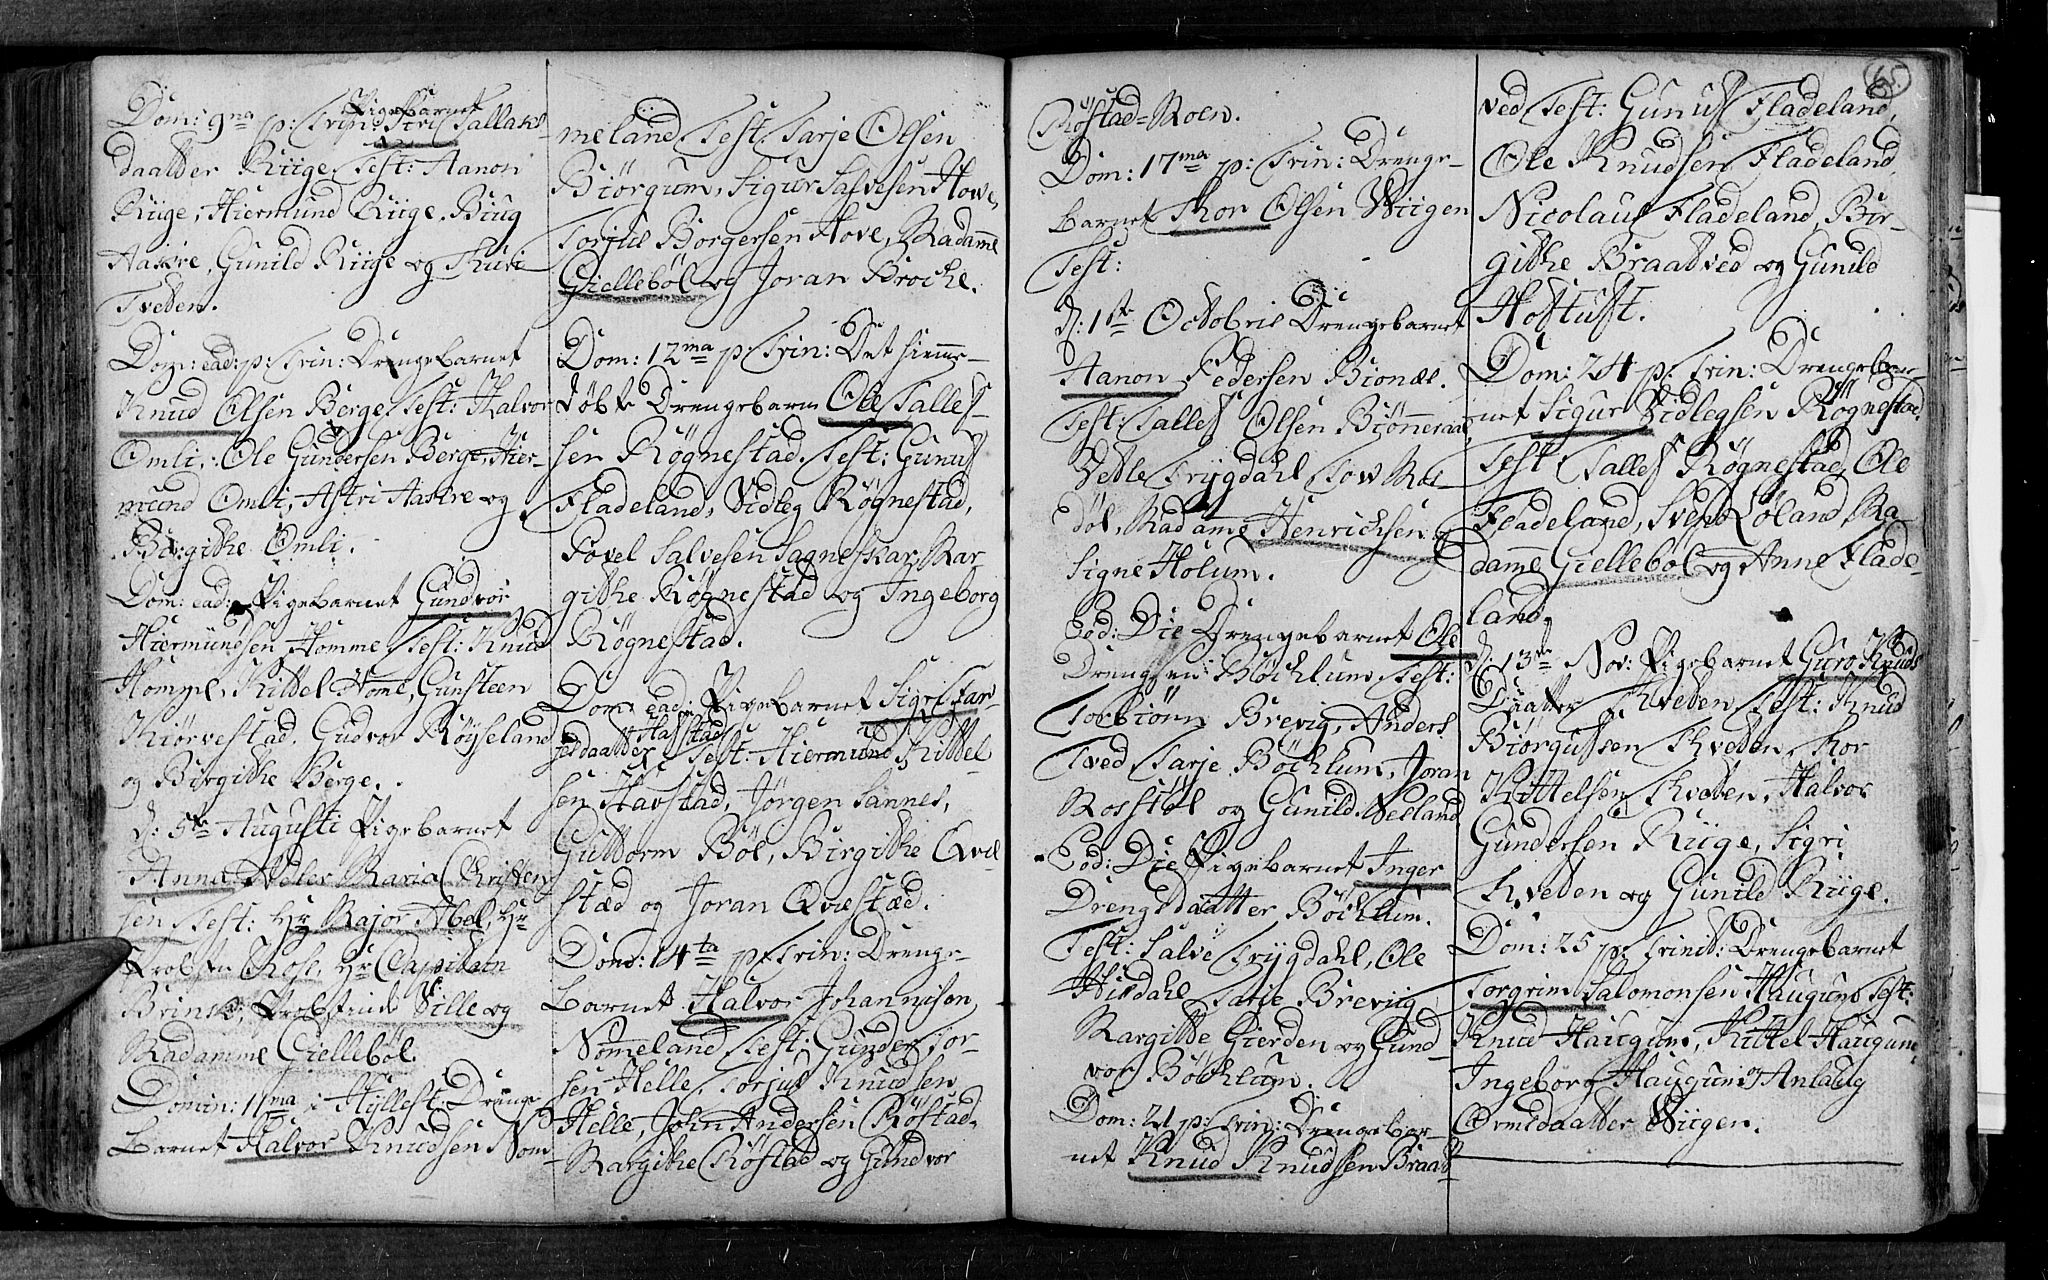 Dom: 9na p: Trin: Pigebarnet Siri Tallaks-
daatter Riige Test: Aanon
Riige, Hiermund Riige. Biug
Aakre, Gunild Riige og Thuri
Tveden.
Dom: ead: p: Trin: Drengebarnet
Knud Olsen Berge Test: Halvor
Omli, Ole Gundersen Berge, Hier-
mund Omli, Astri Aakre og
Birgithe Omli.
Dom: ead: Pigebarnet Gundvor
Hiermundsen Homme Test: Knud
Homme, Kittel Home, Gunsteen
Kiørvestad, Gudvor Røyseland
og Birgithe Berge.
d: 5te Augusti Pigebarnet
Anna Adler Maria Christen-
sen Test: Hr Major Abel, Hr
Probsten Rose, Hr Capitain
Brinch, Probstinde Wille og
Madamme Giellebøl.
Domin: 11ma i Hyllest. Drenge
Barnet Halvor Knudsen Nom
meland Test: Tarje Olsen
Biørgum, Sigur Salvesen Hove,
Torjus Borgersen Hove, Madamme
Giellebøl og Joran Brocke.
Dom: 12ma p: Trin: Det hiemme-
døbte Drengebarn Ole Talles-
sen Røgnestad. Test: Gunuf
Fladeland, Vidleg Røgnestad,
Tovel Salvesen Sagneskar, Mar
githe Røgnestad og Ingeborg
Røgnestad.
Dom: ead: Pigebarnet Sigri Tar-
jeldaatter Hafstad Test: Hiermund Kittel
sen Havstad, Jørgen Sannes,
Guttorm Bøl, Birgithe Qvie
stæd og Joran Qviestæd.
Dom: 14ta p: Trin: Drenge-
Barnet Halvor Johannison
Nommeland Test: Gunder Tor-
sen Helle, Torjus Knudsen
Helle, John Andersen Røstad,
Margithe Røstad og Gundvor
65.
Røstad-Moen.
Dom: 17ma p: Trin: Drenge-
Barnet Thor Olsen Wiigen
Test:
d: 1ste Octobris Drengebarnet
Aanon Pedersen Bionæs.
Test: Tallef Olsen Biønneraae
Vetle Trygdahl Tow
døl, Madame Henrichsen og
Signe Holum.
Eod: Die Drengebarnet Ole
Drengsen Bøchlum Test:
Torbiørn Brevig, Anders
Tved Tarje Bøchlum, Joran
Rosstøl og Gunild Neeland
Eod: Die Pigebarnet Inger
Drengsdaatter Bøchlum.
Test: Salve Trygdahl, Ole
Hisdahl Tarje Breviig
Margitte Gierden og Gund-
vor Bøchlum.
Dom: 21 p: Trin: Drengebar-
net Knud Knudsen Braad
ved Test: Gunuf Fladeland,
Ole Knudsen Fladeland,
Nicolaus Fladeland, Bir-
githe Braatved og Gunild
Hostuft.
Dom: 24 p: Trin: Drengebar-
net Sigur Vidlegsen Røgnestad,
Test Tallef Røgnestad, Ole
Fladeland, Sven Løland, Ma
damme Giellebøl og Anne Flade-
land.
d: 13de Nov: Pigebarnet Guro Knuds
Daatter Kveden Test: Knud
Biørgufsen Kveden, Thor
Kittelsen Kveden, Halvor
Gundersen Riige, Sigri
Kveden og Gunild Riige.
Dom: 25 p: Trinit: Drengebarnet
Torgrim Salomonsen Haugum Test:
Knud Haugum, Kittel Haugum
Ingeborg Haugum og Anlaug
Ormsdaatter Wiigen.